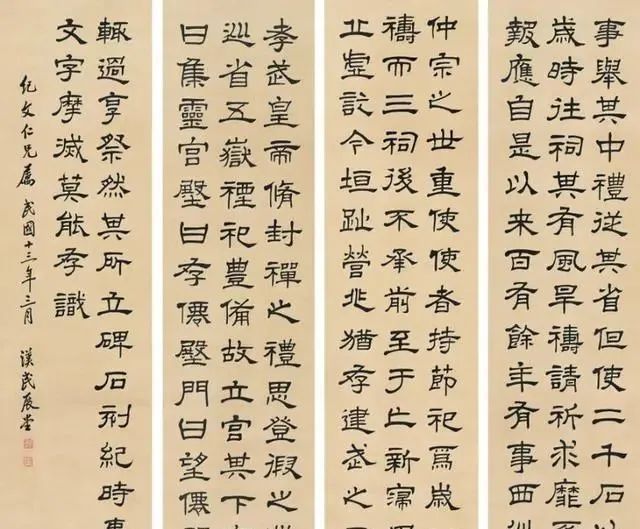 事舉其中禮從其省但使二千石以
歲時往祠其有風旱禱請祈求靡
報應自是以来百有餘年有事西巡
仲宗之世重使使者持節祀焉歲
禱而三祠後不承前至于亡新寖用
丘虛訖今垣趾營兆猶存建武之
孝武皇帝脩封禪之禮思登假之
巡省五嶽禋祀豐備故立宮其下
曰集靈宮壂曰存僊壂門曰望僊
輒過享祭然其所立碑石刻紀時事
文字摩滅莫能存識
紀文仁兄屬 民國十三年三月 漢民展堂